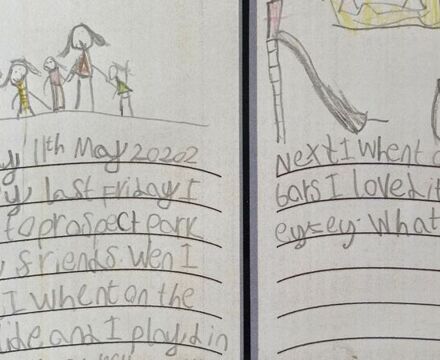 y 11th May 20202
y last Friday I
to prospect park
friends. Wen I
I whent on the
lide and I played in
Next I whent
bars I loved it
eyzey. What